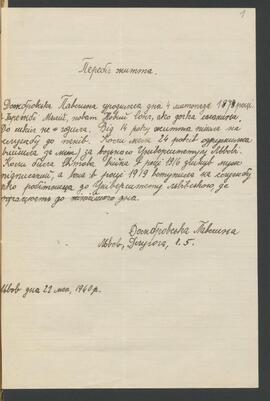 1
Перебіг життя.
Домбровська Павлина уродилася дня 4 листопада 1878 році
повіт Новий Сонч, яко дочка
До школи не ходила. Від 14 року життя пішла на
службу до панів. Коли мала 24 років одружилася
вийшла за мужа) за возного Університету Львові.
Коли була світова війна в році 1916 чоловік
а вона в році 1919 вступила на
яко робітниця до Університету львівського де
працюють до нинішного дня.
Домбровська Павлина
Львів, Довгога, ч. 5.
Львов дня 22 мая, 1940 р.